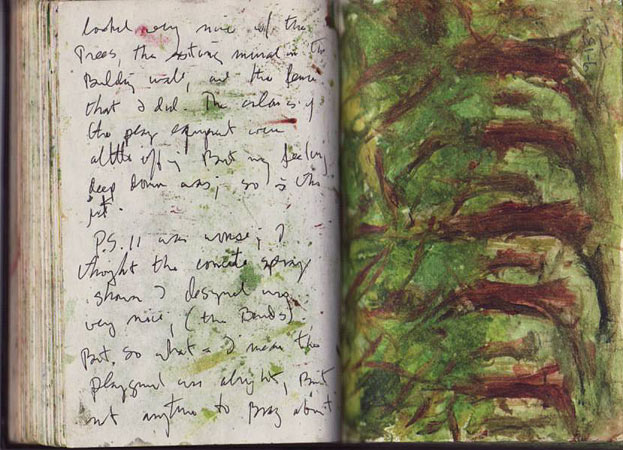 looked very nice w/ the
Trees, the existing mural on the
Building wall, and the fence
that I did. The colors of
the play equipment were
a little iffy. But my feeling
deep down was; so is this
it.
P.S. 11 was worse, I
thought the concrete spray
shower I designed was
very nice, (the Bands)
But, so what - I mean the
playground was alright, But
not anything to Brag about